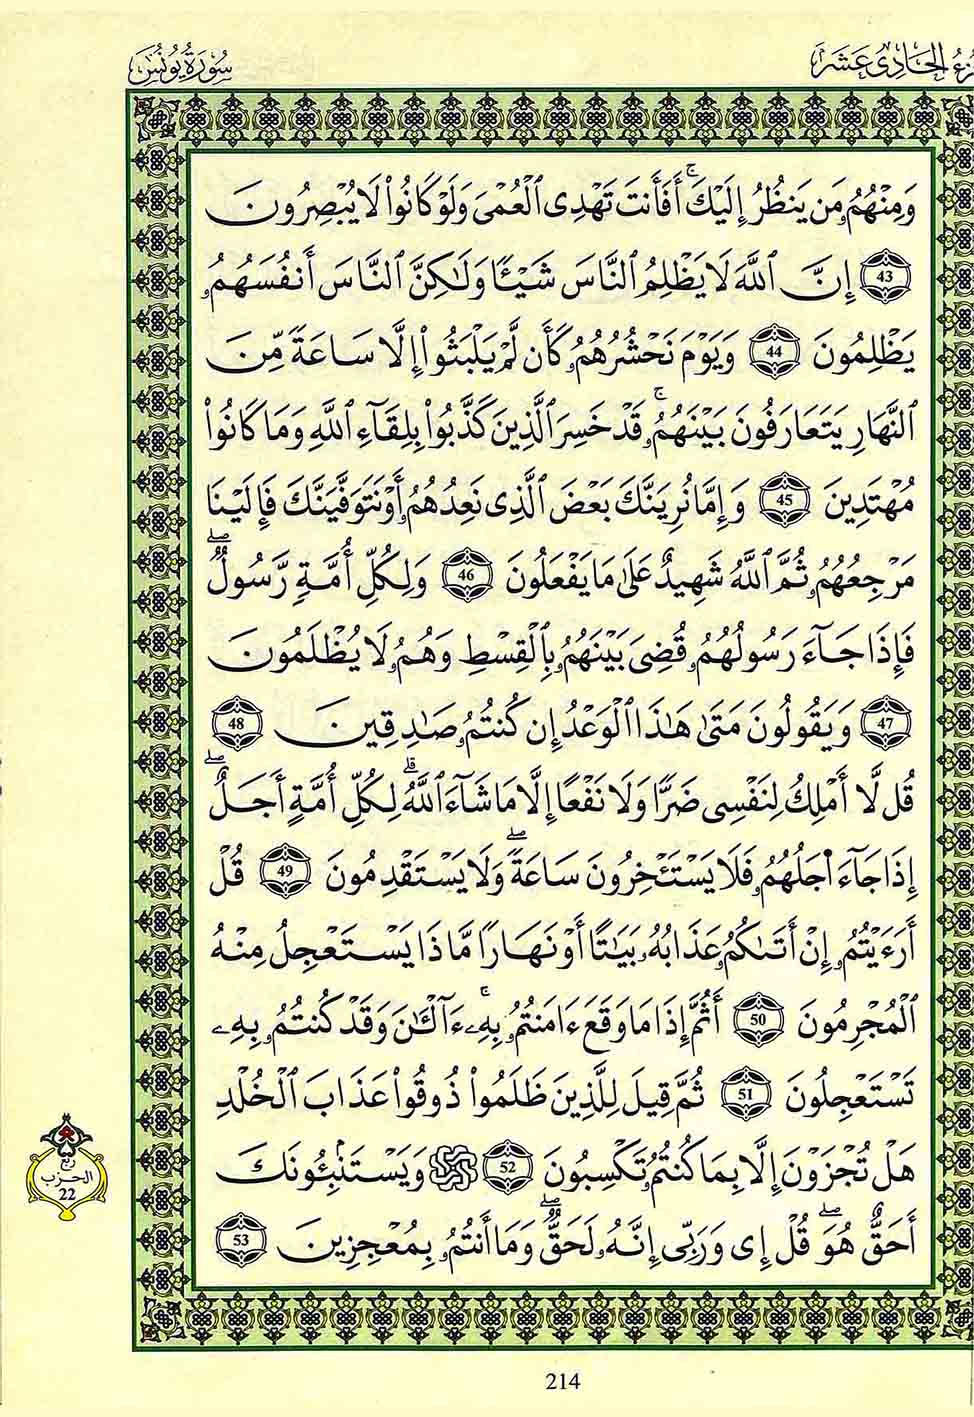 الجزء الحادى عشر
سورة يونس
وَمِنْهُمُۥ مَن يَنظُرُ إِلَيْكَۚ أَفَأَنتَ تَهْدِى اِ۬لْعُمْىَ وَلَوْ كَانُواْ لَا يُبْصِرُونَ
43 إِنَّ اَ۬للَّهَ لَا يَظْلِمُ اُ۬لنَّاسَ شَيْـٔٗا وَلَٰكِنَّ اَ۬لنَّاسَ أَنفُسَهُمُۥ
يَظْلِمُونَ 44 وَيَوْمَ نَحْشُرُهُمُۥ كَأَن لَّمْ يَلْبَثُواْ إِلَّا سَاعَةٗ مِّنَ
اَ۬لنَّهَارِ يَتَعَارَفُونَ بَيْنَهُمُۥۚ قَدْ خَسِرَ اَ۬لَّذِينَ كَذَّبُواْ بِلِقَآءِ اِ۬للَّهِ وَمَا كَانُواْ
مُهْتَدِينَ 45 وَإِمَّا نُرِيَنَّكَ بَعْضَ اَ۬لَّذِى نَعِدُهُمُۥ أَوْ نَتَوَفَّيَنَّكَ فَإِلَيْنَا
مَرْجِعُهُمُۥ ثُمَّ اَ۬للَّهُ شَهِيدٌ عَلَىٰ مَا يَفْعَلُونَ 46 وَلِكُلِّ أُمَّةٖ رَّسُولٞۖ
فَإِذَا جَآءَ رَسُولُهُمُۥ قُضِىَ بَيْنَهُمُۥ بِالْقِسْطِ وَهُمُۥ لَا يُظْلَمُونَ
47 وَيَقُولُونَ مَتَىٰ هَٰذَا اَ۬لْوَعْدُ إِن كُنتُمُۥ صَٰدِقِينَ 48
قُل لَّا أَمْلِكُ لِنَفْسِى ضَرّٗا وَلَا نَفْعًا إِلَّا مَا شَآءَ اَ۬للَّهُۗ لِكُلِّ أُمَّةٍ أَجَلٌۖ
إِذَا جَآءَ اجَلُهُمُۥ فَلَا يَسْتَـْٔخِرُونَ سَاعَةٗۖ وَلَا يَسْتَقْدِمُونَ 49 قُلْ
أَرَءَيْتُمُۥ إِنْ أَتَىٰكُمُۥ عَذَابُهُۥ بَيَٰتًا أَوْ نَهَارٗا مَّا ذَا يَسْتَعْجِلُ مِنْهُ
اُ۬لْمُجْرِمُونَ 50 أَثُمَّ إِذَا مَا وَقَعَ ءَامَنتُمُۥ بِهِۦۚ ءَآلْـَٰٔنَ وَقَدْ كُنتُمُۥ بِهِۦ
تَسْتَعْجِلُونَ 51 ثُمَّ قِيلَ لِلَّذِينَ ظَلَمُواْ ذُوقُواْ عَذَابَ اَ۬لْخُلْدِ
هَلْ تُجْزَوْنَ إِلَّا بِمَا كُنتُمُۥ تَكْسِبُونَ 52 وَيَسْتَنۢبِـُٔونَكَ
أَحَقٌّ هُوَۖ قُلْ إِى وَرَبِّى إِنَّهُۥ لَحَقّٞۖ وَمَا أَنتُمُۥ بِمُعْجِزِينَ 53
ربع
الحزب
22
214